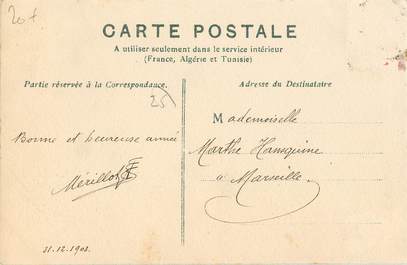 20+
CARTE POSTALE
A utiliser seulement dans le service intérieur
(France, Algérie et Tunisie)
Partie réservée à la Correspondance.
Adresse du Destinataire
25
Mademoiselle
Bonne et heureuse année
Marthe
Mérillot
à Marseille.
31.12.1903.